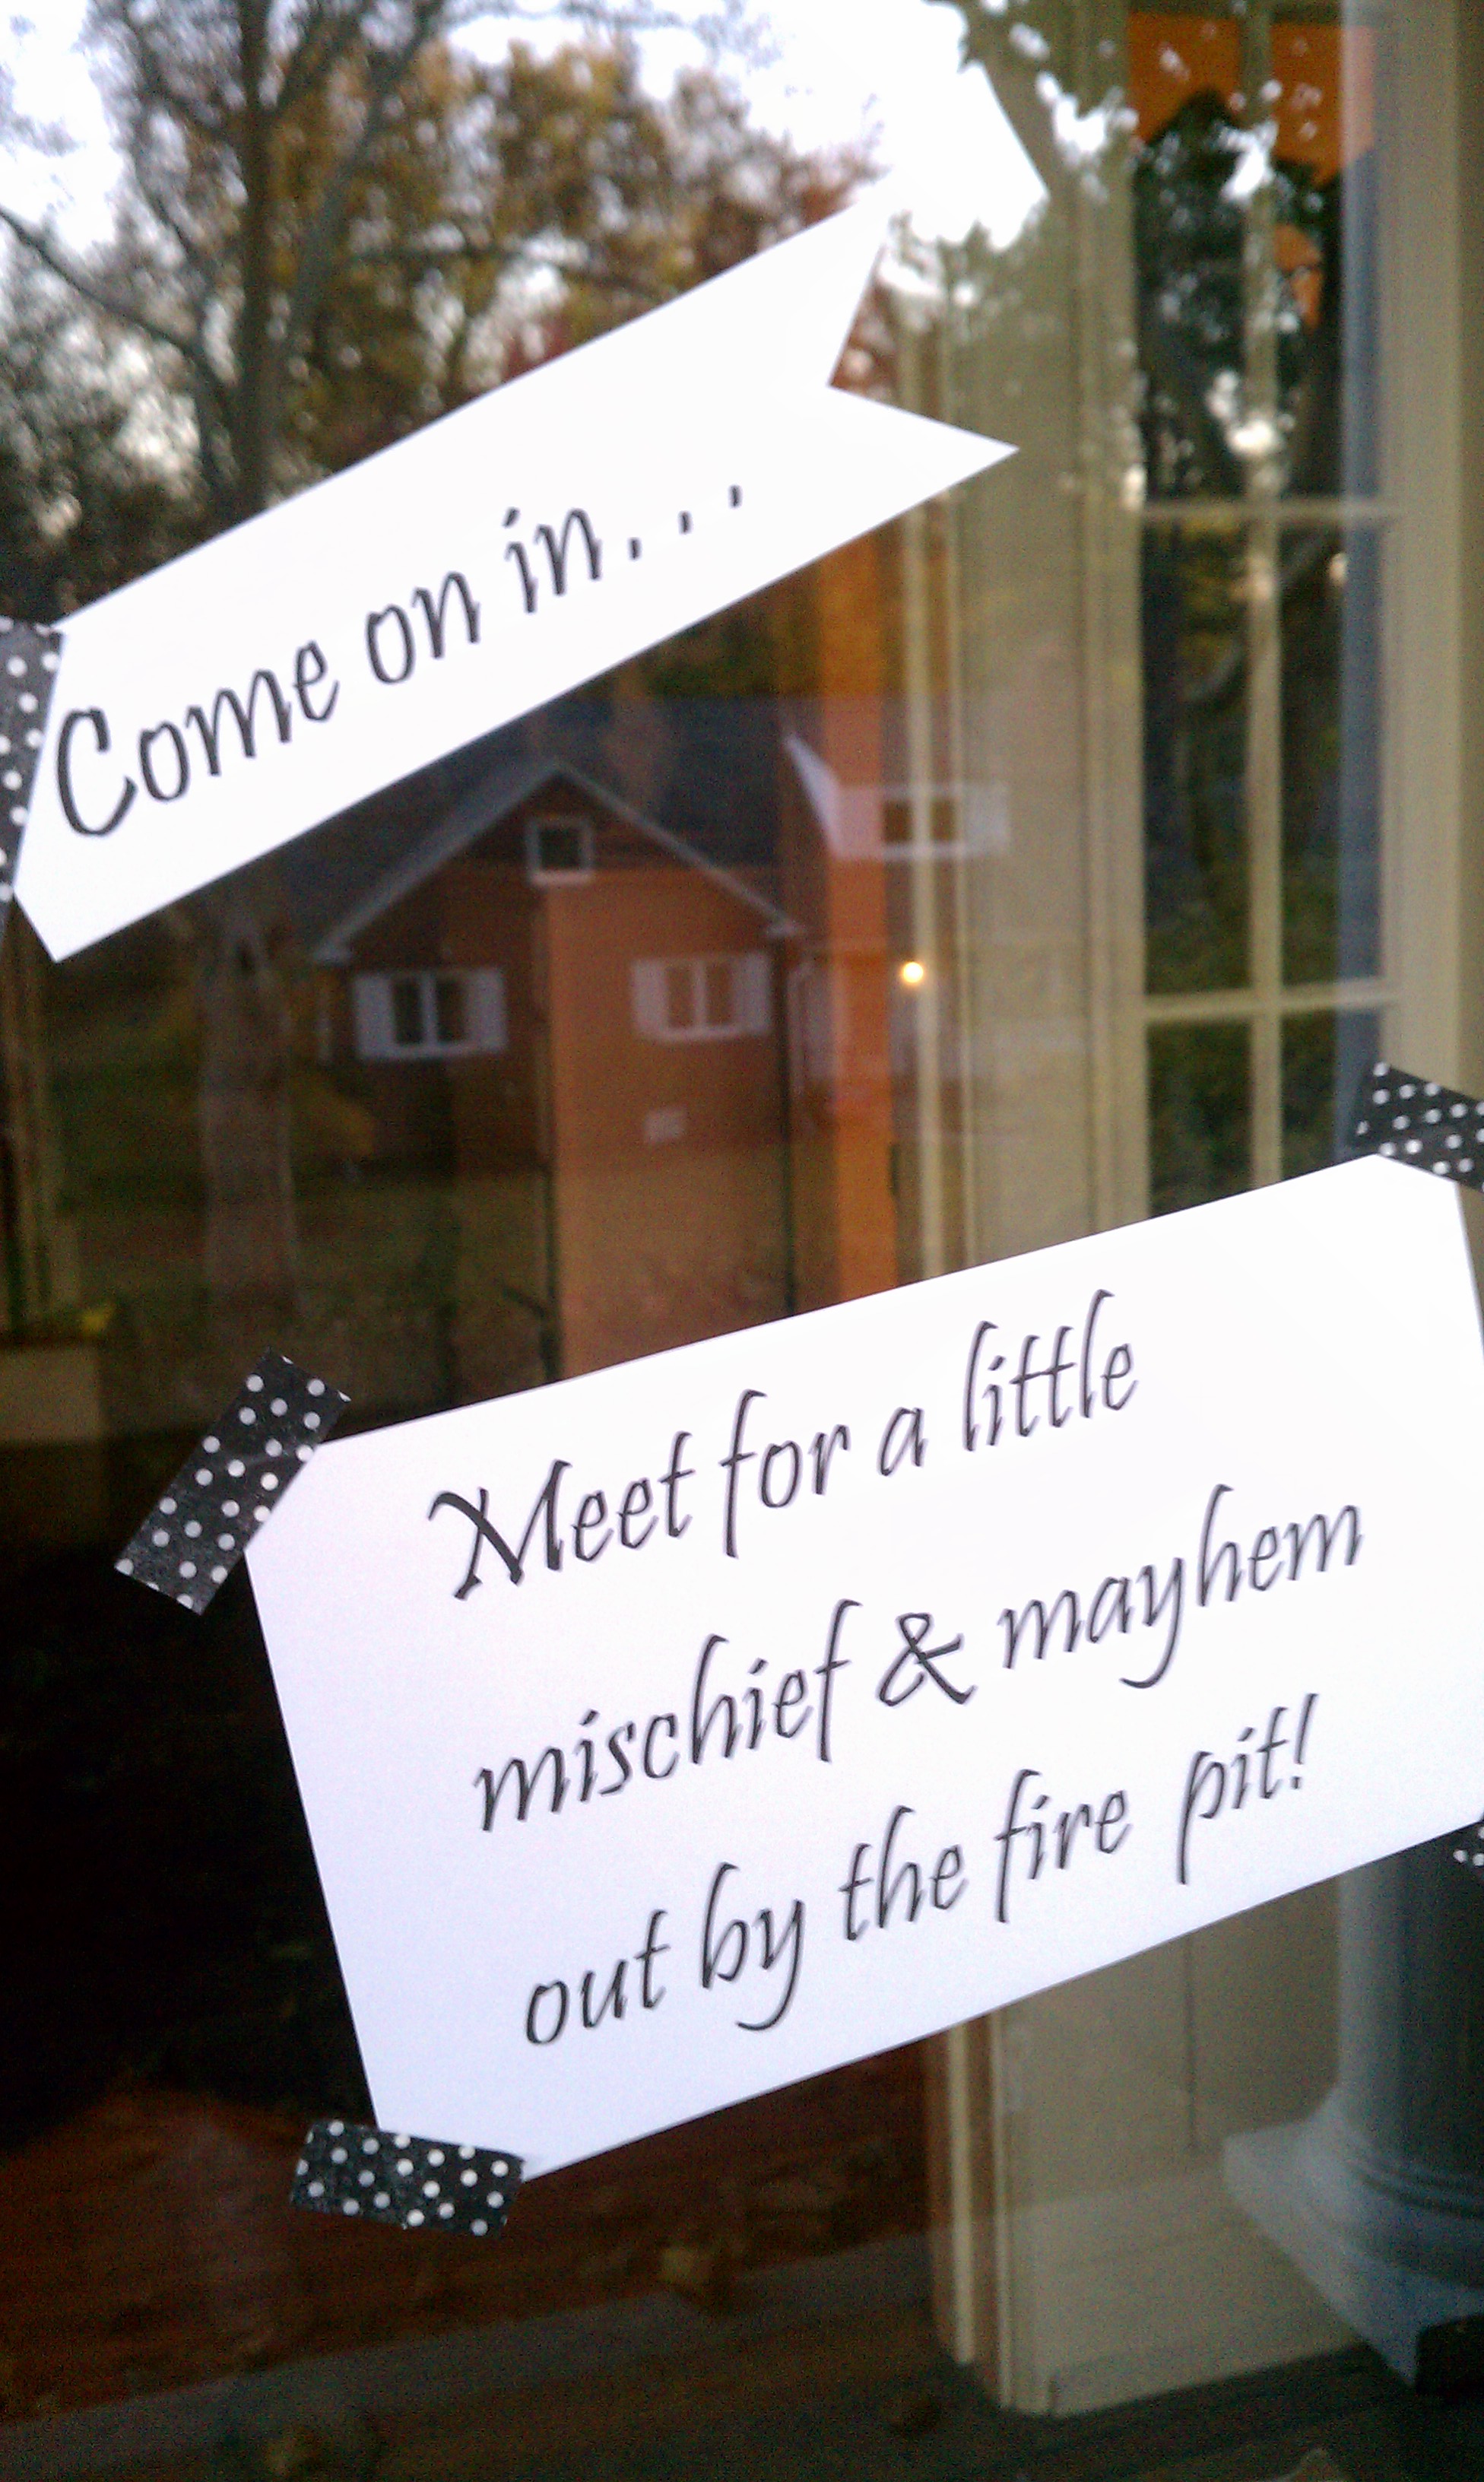 Come on in...
Meet for a little
mischief & mayhem
out by the fire pit!